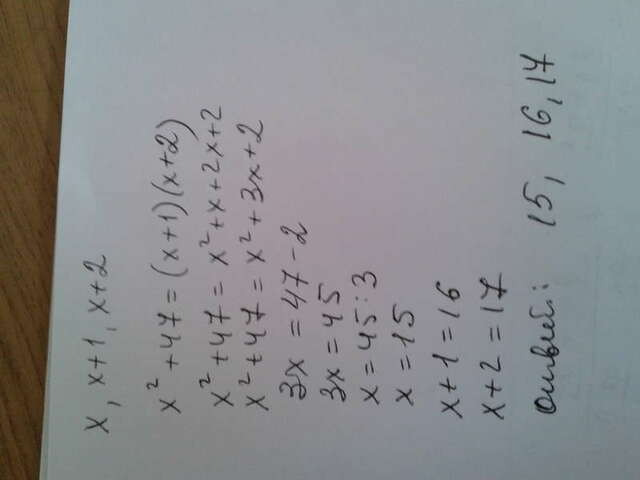 x, x+1, x+2
x² +47 = (x+1)(x+2)
x² +47 = x² +x+2x+2
x² +47 = x² +3x+2
3x = 47-2
3x = 45
x = 45:3
x = 15
x+1 = 16
x+2 = 17
Ответ: 15, 16, 17